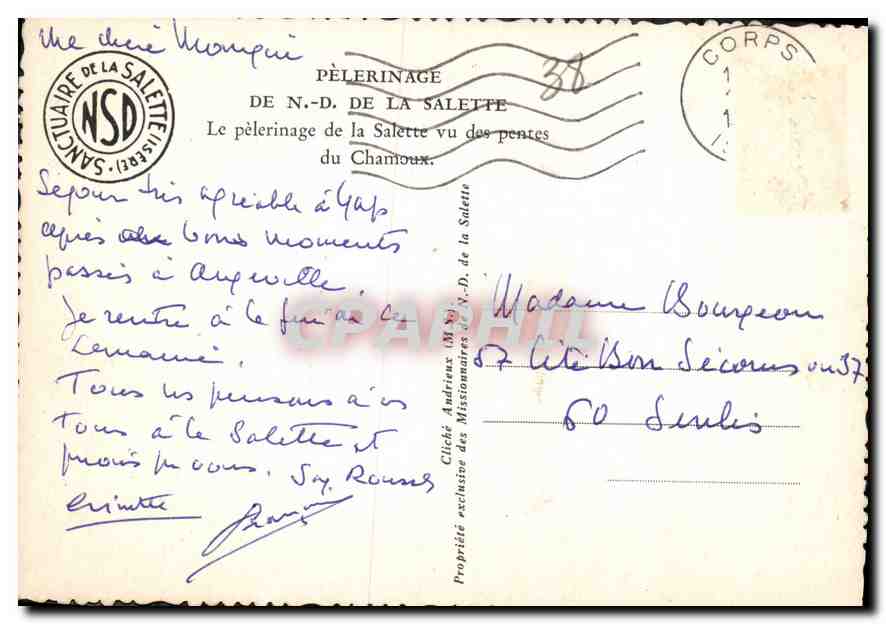 Ma chère Monique
SANCTUAIRE DE LA SALETTE (ISÈRE)
NSD
PÈLERINAGE
DE N.-D. DE LA SALETTE
Le pèlerinage de la Salette vu des pentes
du Chamoux.
38
CORPS
Séjour très agréable à Gap
après bons moments
passés à
Je rentre à la fin de la
semaine.
Tous nos pensons à vs
Tous à la Salette et
prions pr vous.
Cliché Andrieux (M.S.)
Propriété exclusive des Missionnaires de N.-D. de la Salette
CPAPHIL
Madame Bourgeon
57 Cité Bon Secours ou 37
60 Senlis